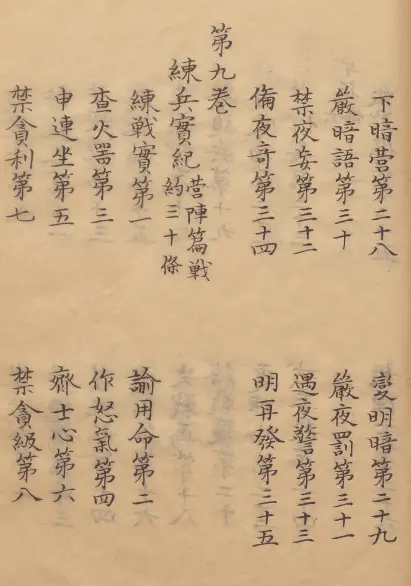 下暗營第二十八
變明暗第二十九
嚴暗語第三十
嚴夜罰第三十一
禁夜妄第三十二
遇夜警第三十三
備夜奇第三十四
明再發第三十五
第九卷
練兵實紀 營陣篇戰約三十條
練戰實第一
諭用命第二
查火器第三
作怒氣第四
申連坐第五
齊士心第六
禁貪利第七
禁貪級第八